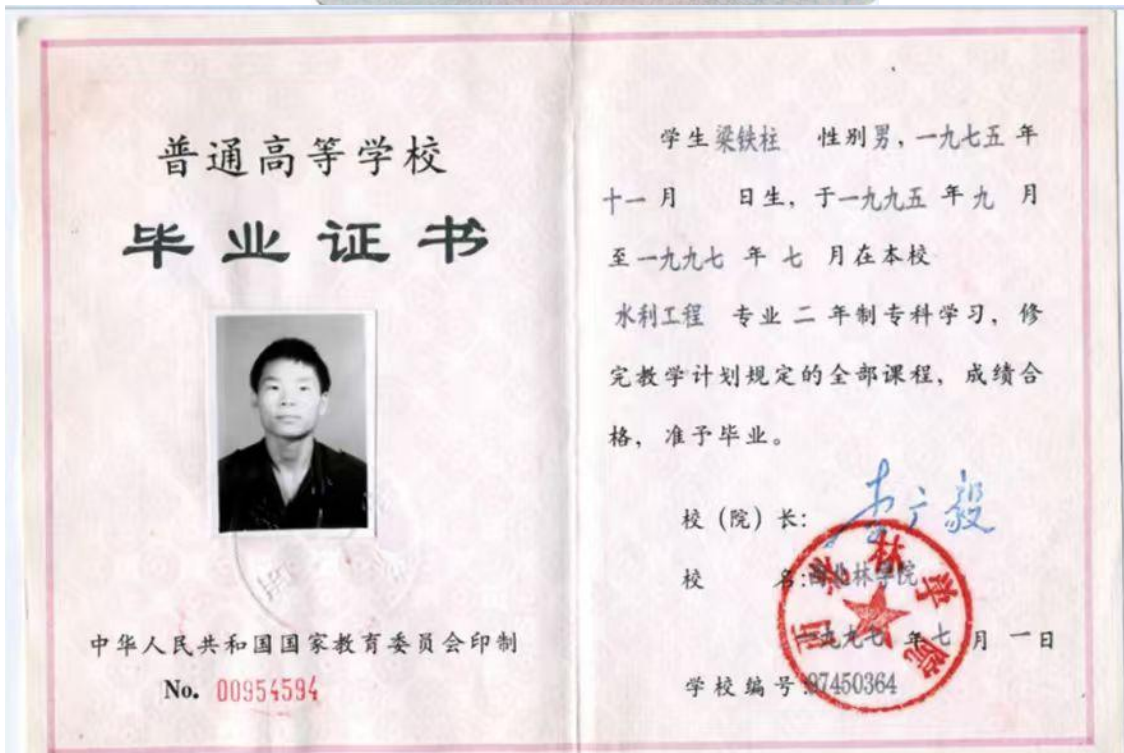 普通高等学校
毕业证书
中华人民共和国国家教育委员会印制
No. 00954594
学生梁铁柱 性别男，一九七五年
十一月 日生，于一九九五年九月
至一九九七年七月在本校
水利工程 专业二年制专科学习，修
完教学计划规定的全部课程，成绩合
格，准予毕业。
校（院）长：李广毅
校 名：西北林学院
西北林学院
一九九七年七月一日
学校编号：97450364